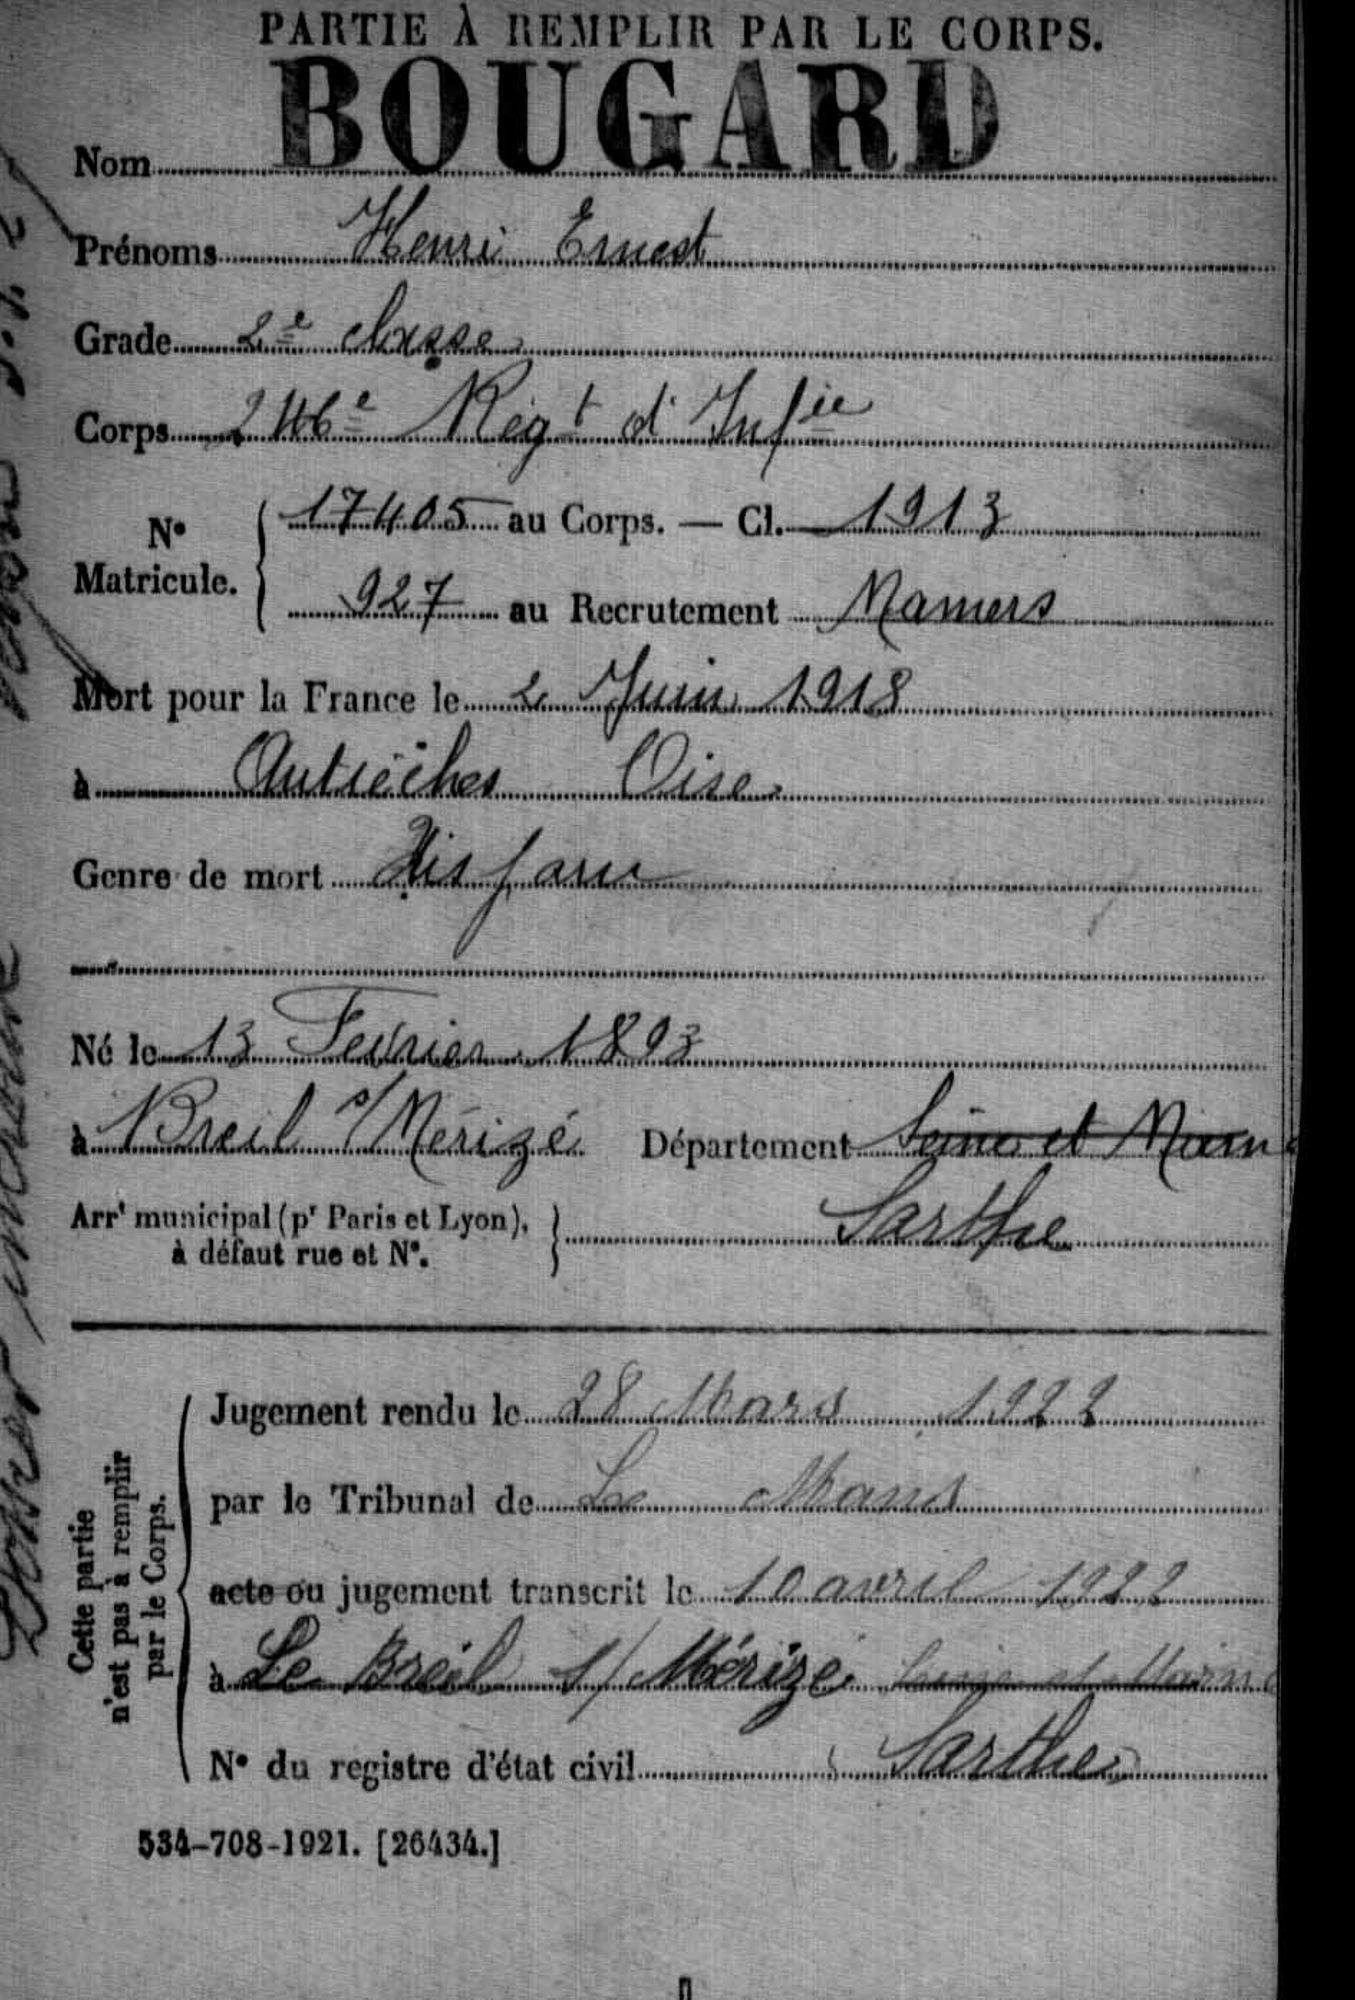 PARTIE À REMPLIR PAR LE CORPS.
Nom BOUGARD
Prénoms Henri Ernest
Grade 2e classe
Corps 246e Régt d'Infie
N° Matricule. { 17405 au Corps. — Cl. 1913
927 au Recrutement Mamers
Mort pour la France le 2 Juin 1918
à Autrêches Oise
Genre de mort Disparu
Né le 13 Fevrier 1893
à Breil s/ Mérizé Département Seine et Marne
Arrt municipal (pr Paris et Lyon), à défaut rue et N°. } Sarthe
Cette partie n'est pas à remplir par le Corps.
Jugement rendu le 28 Mars 1922
par le Tribunal de Le Mans
acte ou jugement transcrit le 10 avril 1922
à Le Breil s/ Mérizé Seine et Marne
N° du registre d'état civil Sarthe
534-708-1921. [26434.]